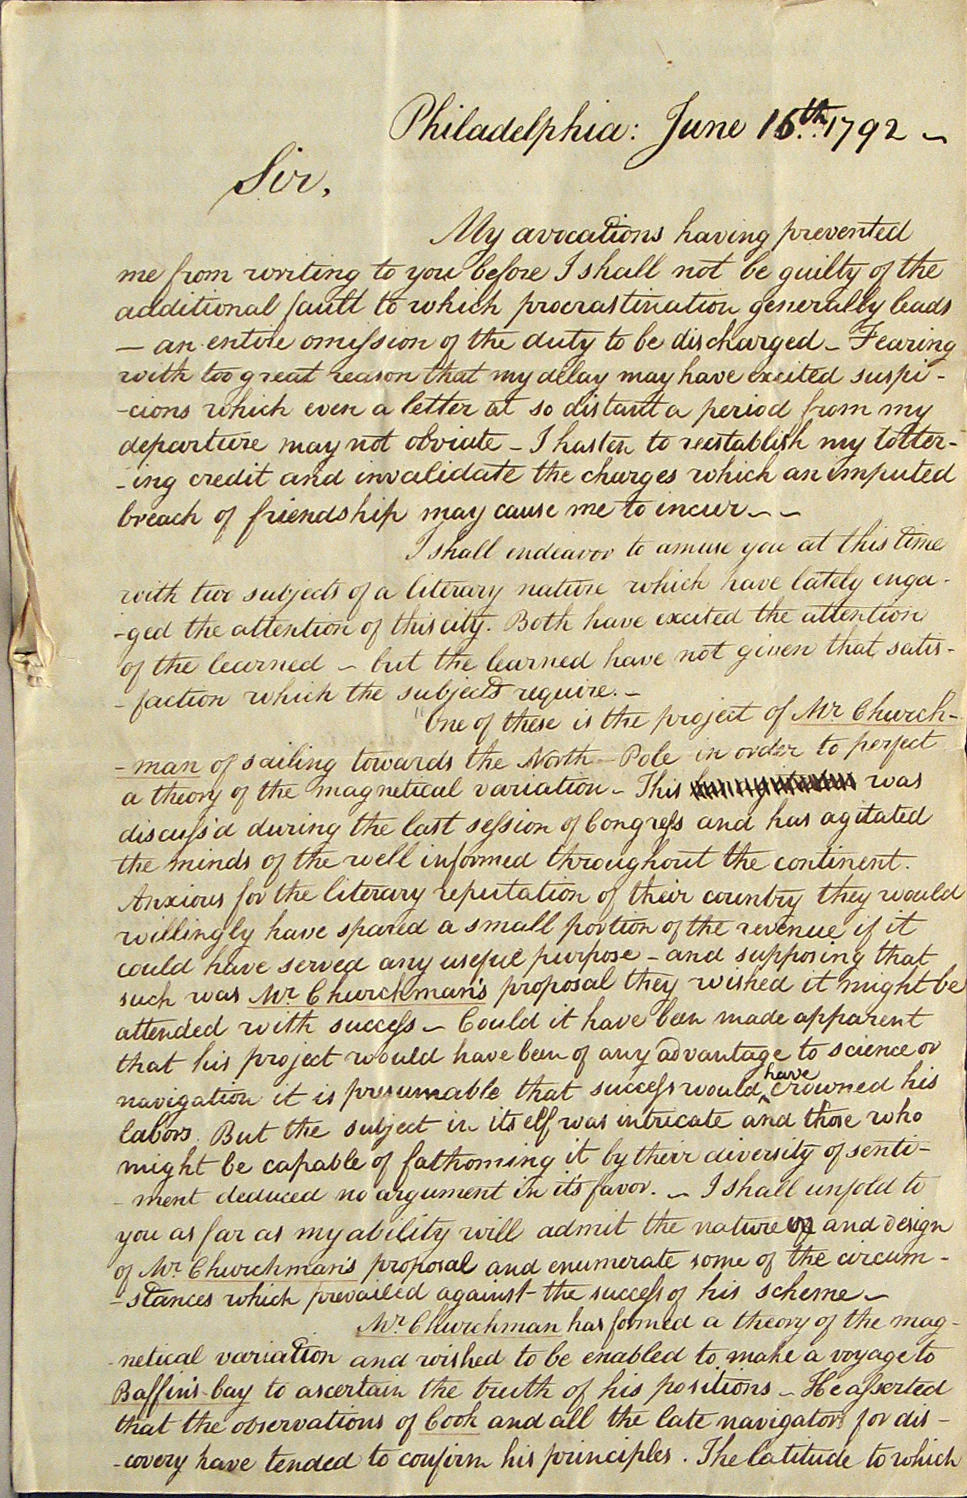 Philadelphia: June 16th. 1792 ~
Sir,
My avocations having prevented
me from writing to you before I shall not be guilty of the
additional fault to which procrastination generally leads
— an entire omission of the duty to be discharged – Fearing
with too great reason that my delay may have excited suspi-
-cions which even a letter at so distant a period from my
departure may not obviate – I hasten to reestablish my totter-
-ing credit and invalidate the charges which an imputed
breach of friendship may cause me to incur ~ ~
I shall endeavor to amuse you at this time
with two subjects of a literary nature which have lately enga-
-ged the attention of this city. Both have excited the attention
of the learned – but the learned have not given that satis-
-faction which the subjects require. –
"One of these is the project of Mr. Church-
-man of sailing towards the North-Pole in order to perfect
a theory of the magnetical variation – This was
discuss'd during the last session of Congress and has agitated
the minds of the well informed throughout the continent.
Anxious for the literary reputation of their country they would
willingly have spared a small portion of the revenue if it
could have served any useful purpose – and supposing that
such was Mr. Churchman's proposal they wished it might be
attended with success – Could it have been made apparent
that his project would have been of any advantage to science or
navigation it is presumable that success would have crowned his
labors. But the subject in itself was intricate and those who
might be capable of fathoming it by their diversity of senti-
-ment deduced no argument in its favor. – I shall unfold to
you as far as my ability will admit the nature of and design
of Mr. Churchman's proposal and enumerate some of the circum-
-stances which prevailed against the success of his scheme –
Mr. Churchman has formed a theory of the mag-
-netical variation and wished to be enabled to make a voyage to
Baffin's-bay to ascertain the truth of his positions – He asserted
that the observations of Cook and all the late navigators for dis-
-covery have tended to confirm his principles. The latitude to which